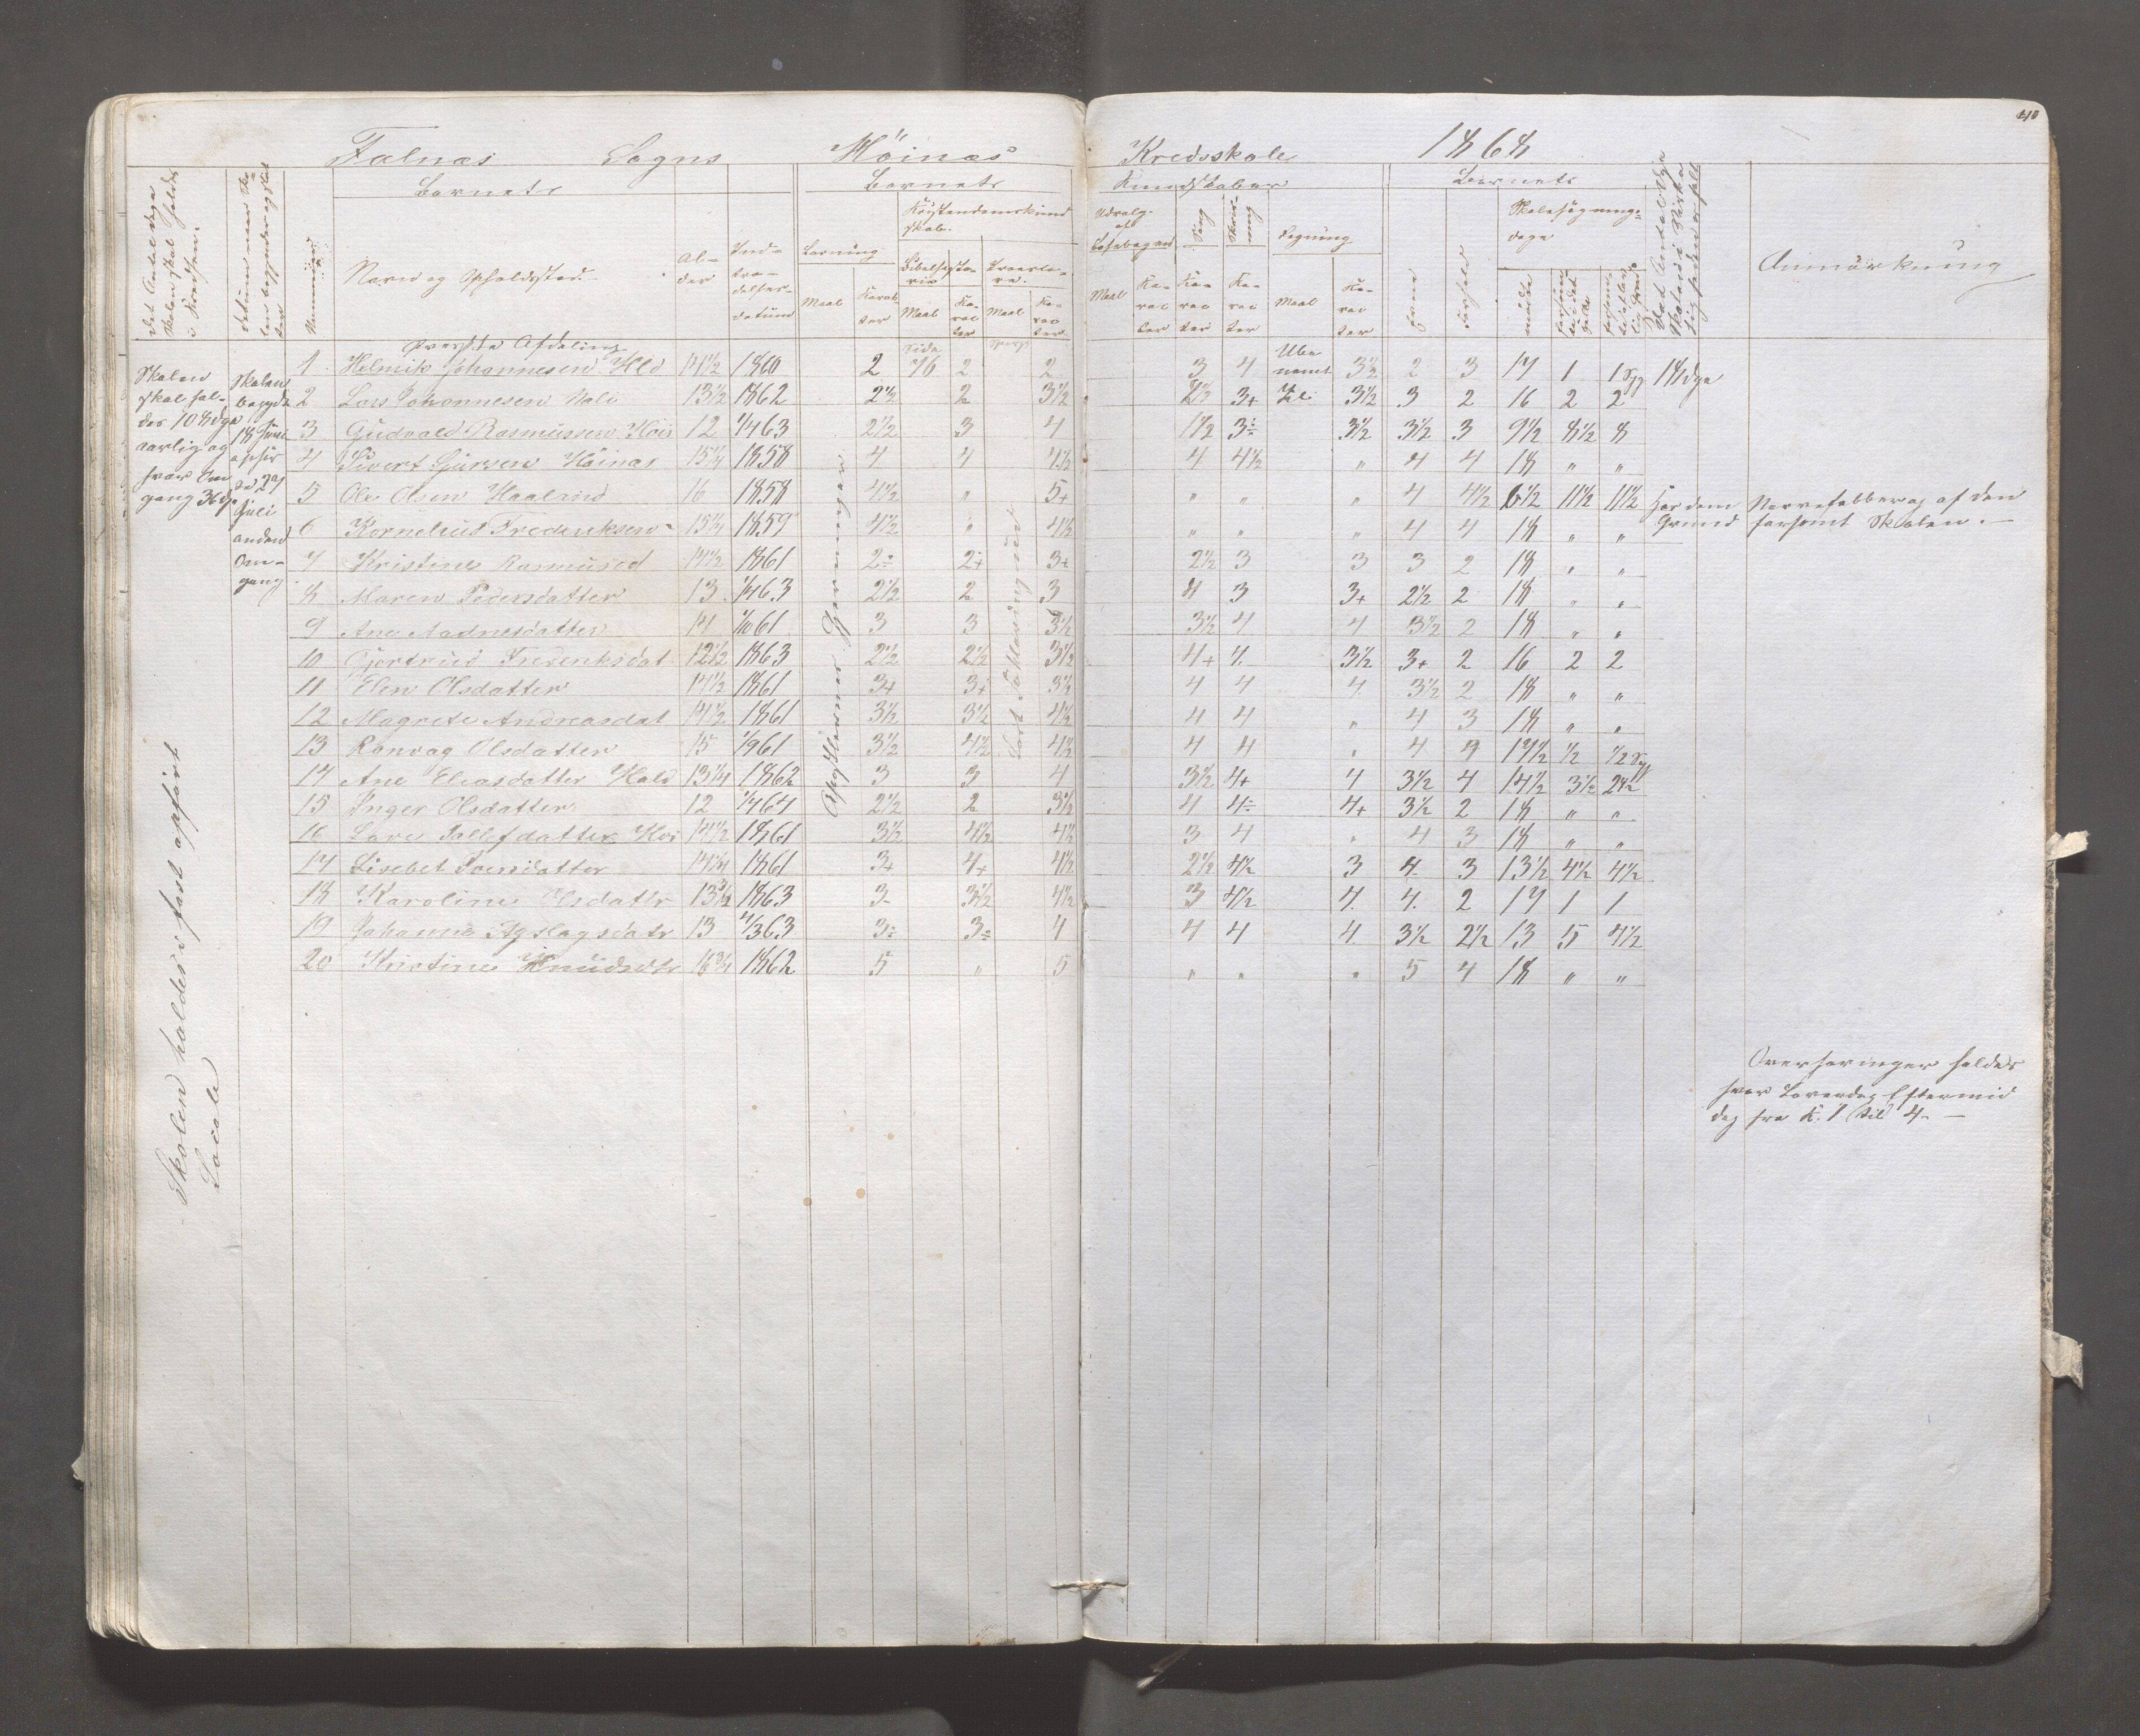 40
Falnæs Sogns Höinæs Kredsskole 1868
Barnets Barnets Kundskaber Barnets
Det Antal Dage Skolen skal holdes i Kredsen.
Datum naar Skolen begynder og slutter
Nummer
Navn og Opholdssted
Alder
Indtrædelsesdatum
Læsning
Maal
Karakter
Kristendomskundskab.
Bibelhistorie
Maal
Karakter
Troeslære.
Maal
Karakter
Udvalg af Læsebogen
Maal
Karakter
Sang
Karakter
Skrivning
Karakter
Regning
Maal
Karakter
Evne
Forhold
Skolesøgningsdage
mödte
forsömte i det Hele
Anmærkning
Øverste Afdeling
Skolen skal holdes 108 Dge aarlig og hver Omgang 36 Dge
Skolen begyndte 18 Juni ophör d 27 Juli anden Omgang
Skolen holdes i fast opfört Locale
1 Helmik Johannesen 14½ 1860 2 Side 76 2 2 3 4 Ubenævnt 3½ 2 3 17 1 1 Syg 18 dge
2 Lars Johannesen 13½ 1862 2½ 2 3½ 2½ 3+ 3½ 3 2 16 2 2
3 Gudvald Rasmussen Höi 12 1/4 63 2½ 3 4 1½ 3÷ 3½ 3½ 3 9½ 8½ 8
4 Sivert Gjursen Höinæs 15¼ 1858 4 4 4½ 4 4½ " 4 4 18 " "
5 Ole Olsen Haaland 16 1858 4½ " 5+ " " " 4 4½ 6½ 11½ 11½ Har den Nervefeber og af den Grund forsömt Skolen. —
6 Kornelius Frederiksen 15¼ 1859 4½ " 4½ " " " 4 4 18 " "
7 Kristine Rasmusd 14½ 1861 2÷ 2+ 3+ 2½ 3 3 3 2 18 " "
8 Maren Pedersdatter 13 1/4 63 2½ 2 3 4 3 3+ 2½ 2 18 " "
9 Ane Aadnesdatter 14 1/10 61 3 3 3½ 3½ 4 4 3½ 2 18 " "
10 Gjertrud Frederiksdat 12½ 1863 2½ 2½ 3½ 4+ 4 3½ 3+ 2 16 2 2
11 Elen Olsdatter 14½ 1861 3+ 3+ 3½ 4 4 4 3½ 2 18 " "
12 Magrete Andreasdat 14½ 1861 3½ 3½ 4½ 4 4 " 4 3 18 " "
13 Ranvag Olsdatter 15 1/9 61 3½ 4½ 4½ 4 4 " 4 4 17½ ½ ½ Syg
14 Ane Eliasdatter Hald 13¼ 1862 3 3 4 3½ 4+ 4 3½ 4 14½ 3½ 2½
15 Inger Olsdatter 12 1/4 64 2½ 2 3½ 4 4÷ 4+ 3½ 2 18 " "
16 Lave Tallefdatter 14½ 1861 3½ 4½ 4½ 3 4 " 4 3 18 " "
17 Lisebet Iversdatter 14¼ 1861 3+ 4+ 4½ 2½ 4½ 3 4 3 13½ 4½ 4½
18 Karoline Olsdatter 13½ 1863 3- 3½ 4½ 3 4½ 4 4 2 17 1 1
19 Johanne Aslagsdatr 13 4/3 63 3÷ 3÷ 4 4 4 4 3½ 2½ 13 5 4½
20 Kristine Knudsdtr 16¾ 1862 5 " 5 " " " 5 4 18 " "
Apostlernes Gjerninger
Overhøringer holdes
hver Løverdag Eftermid
dag fra K. 1 til 4 —